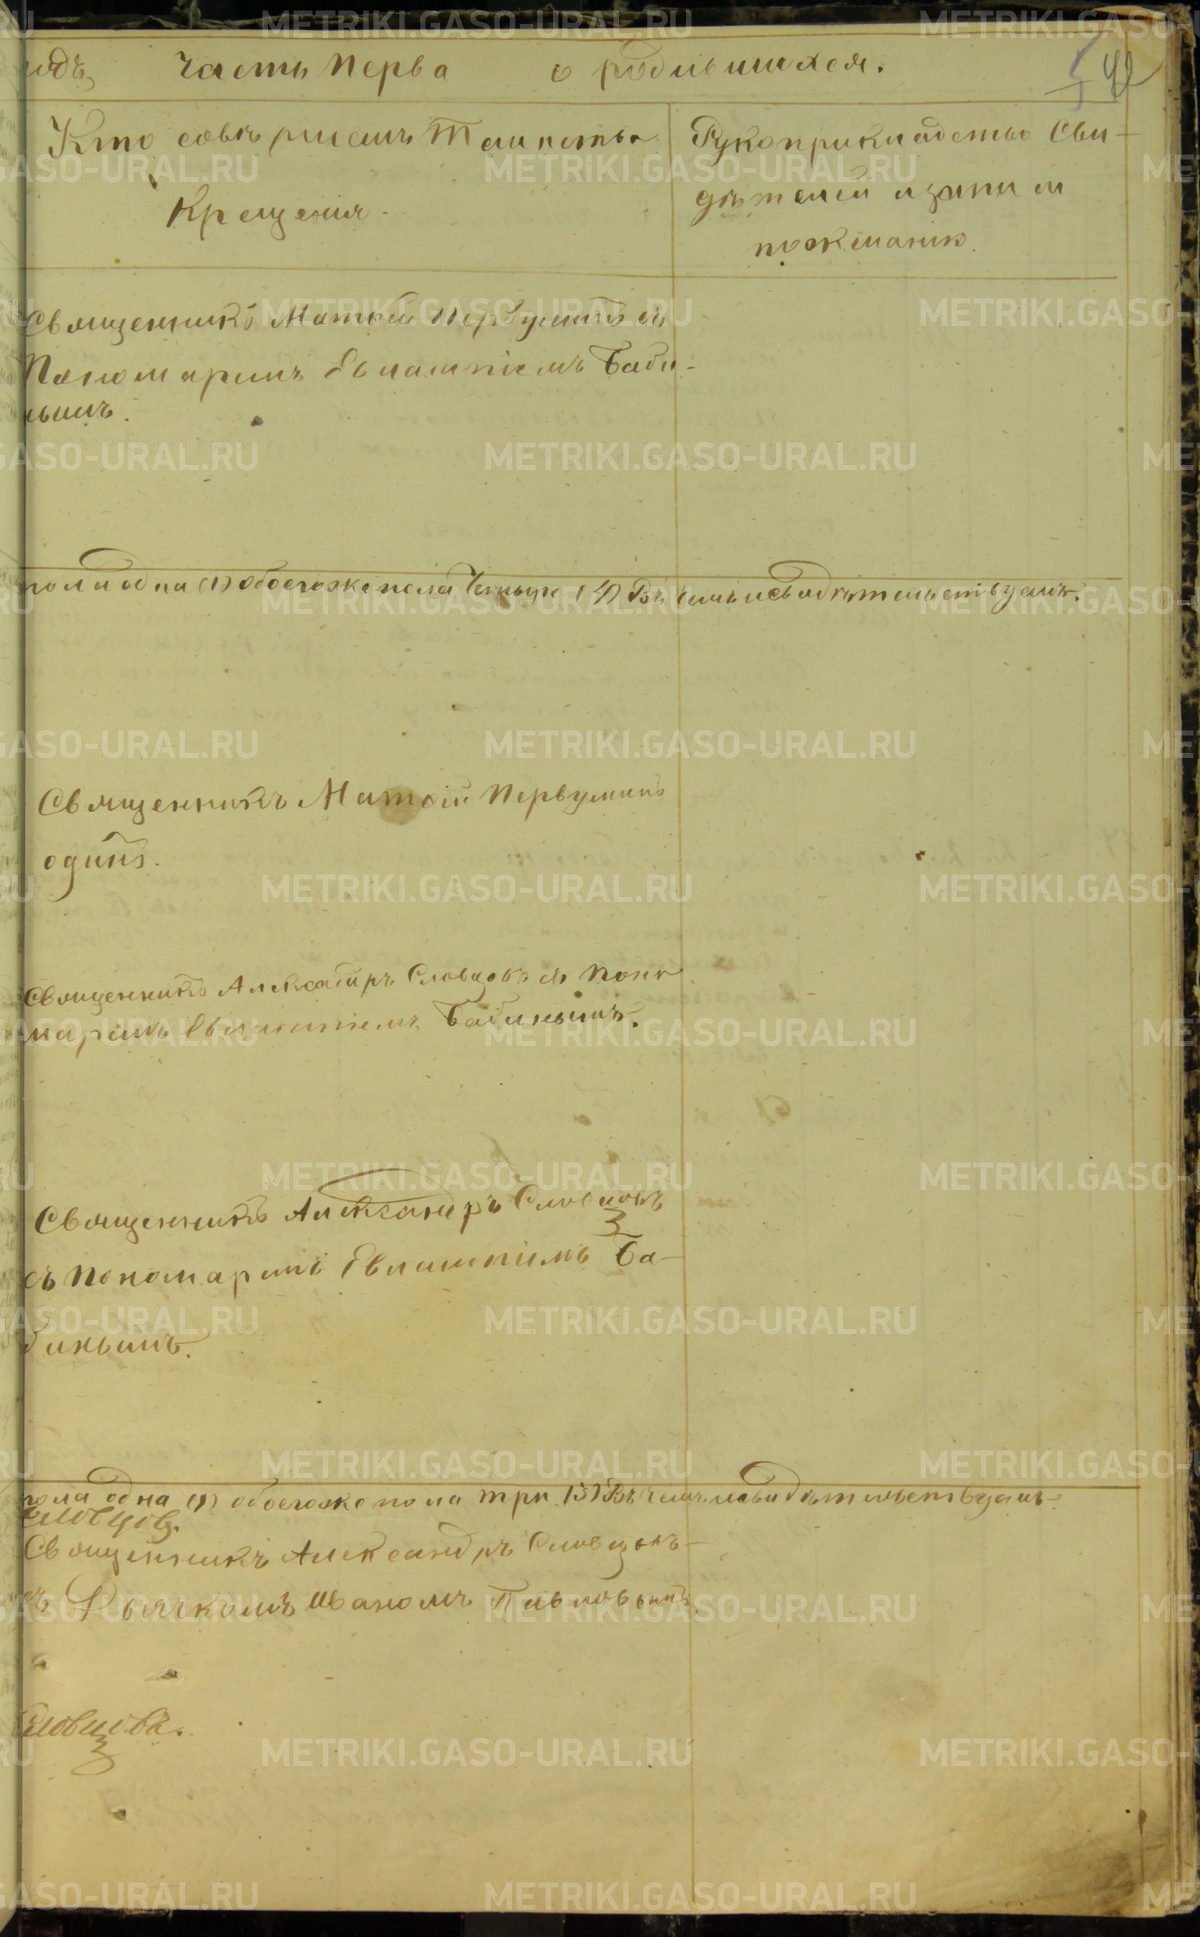 годъ, часть перва о родившихся.
Кто совершилъ таинство
Крещенія.
Рукоприкладство Сви-
дѣтелей и записи
по желанію.
Священникъ Матѳій Первушинъ съ
Пономаремъ Евлампіемъ Баби-
нымъ.
пола одна (1) обоего же пола четыре (4) Въ чемъ и свидѣтельствуемъ.
Священникъ Матѳій Первушинъ
одинъ.
Священникъ Александръ Словцовъ съ Поно
маремъ Евлампіемъ Бабинымъ.
Священникъ Александръ Словцовъ
съ Пономаремъ Евлампіемъ Ба-
бинымъ.
пола одна (1) обоего же пола три (3) Въ чемъ и свидѣтельствуемъ
Словцовъ.
Священникъ Александръ Словцовъ
съ Дьячкомъ Иваномъ
Словцовъ.
METRIKI.GASO-URAL.RU